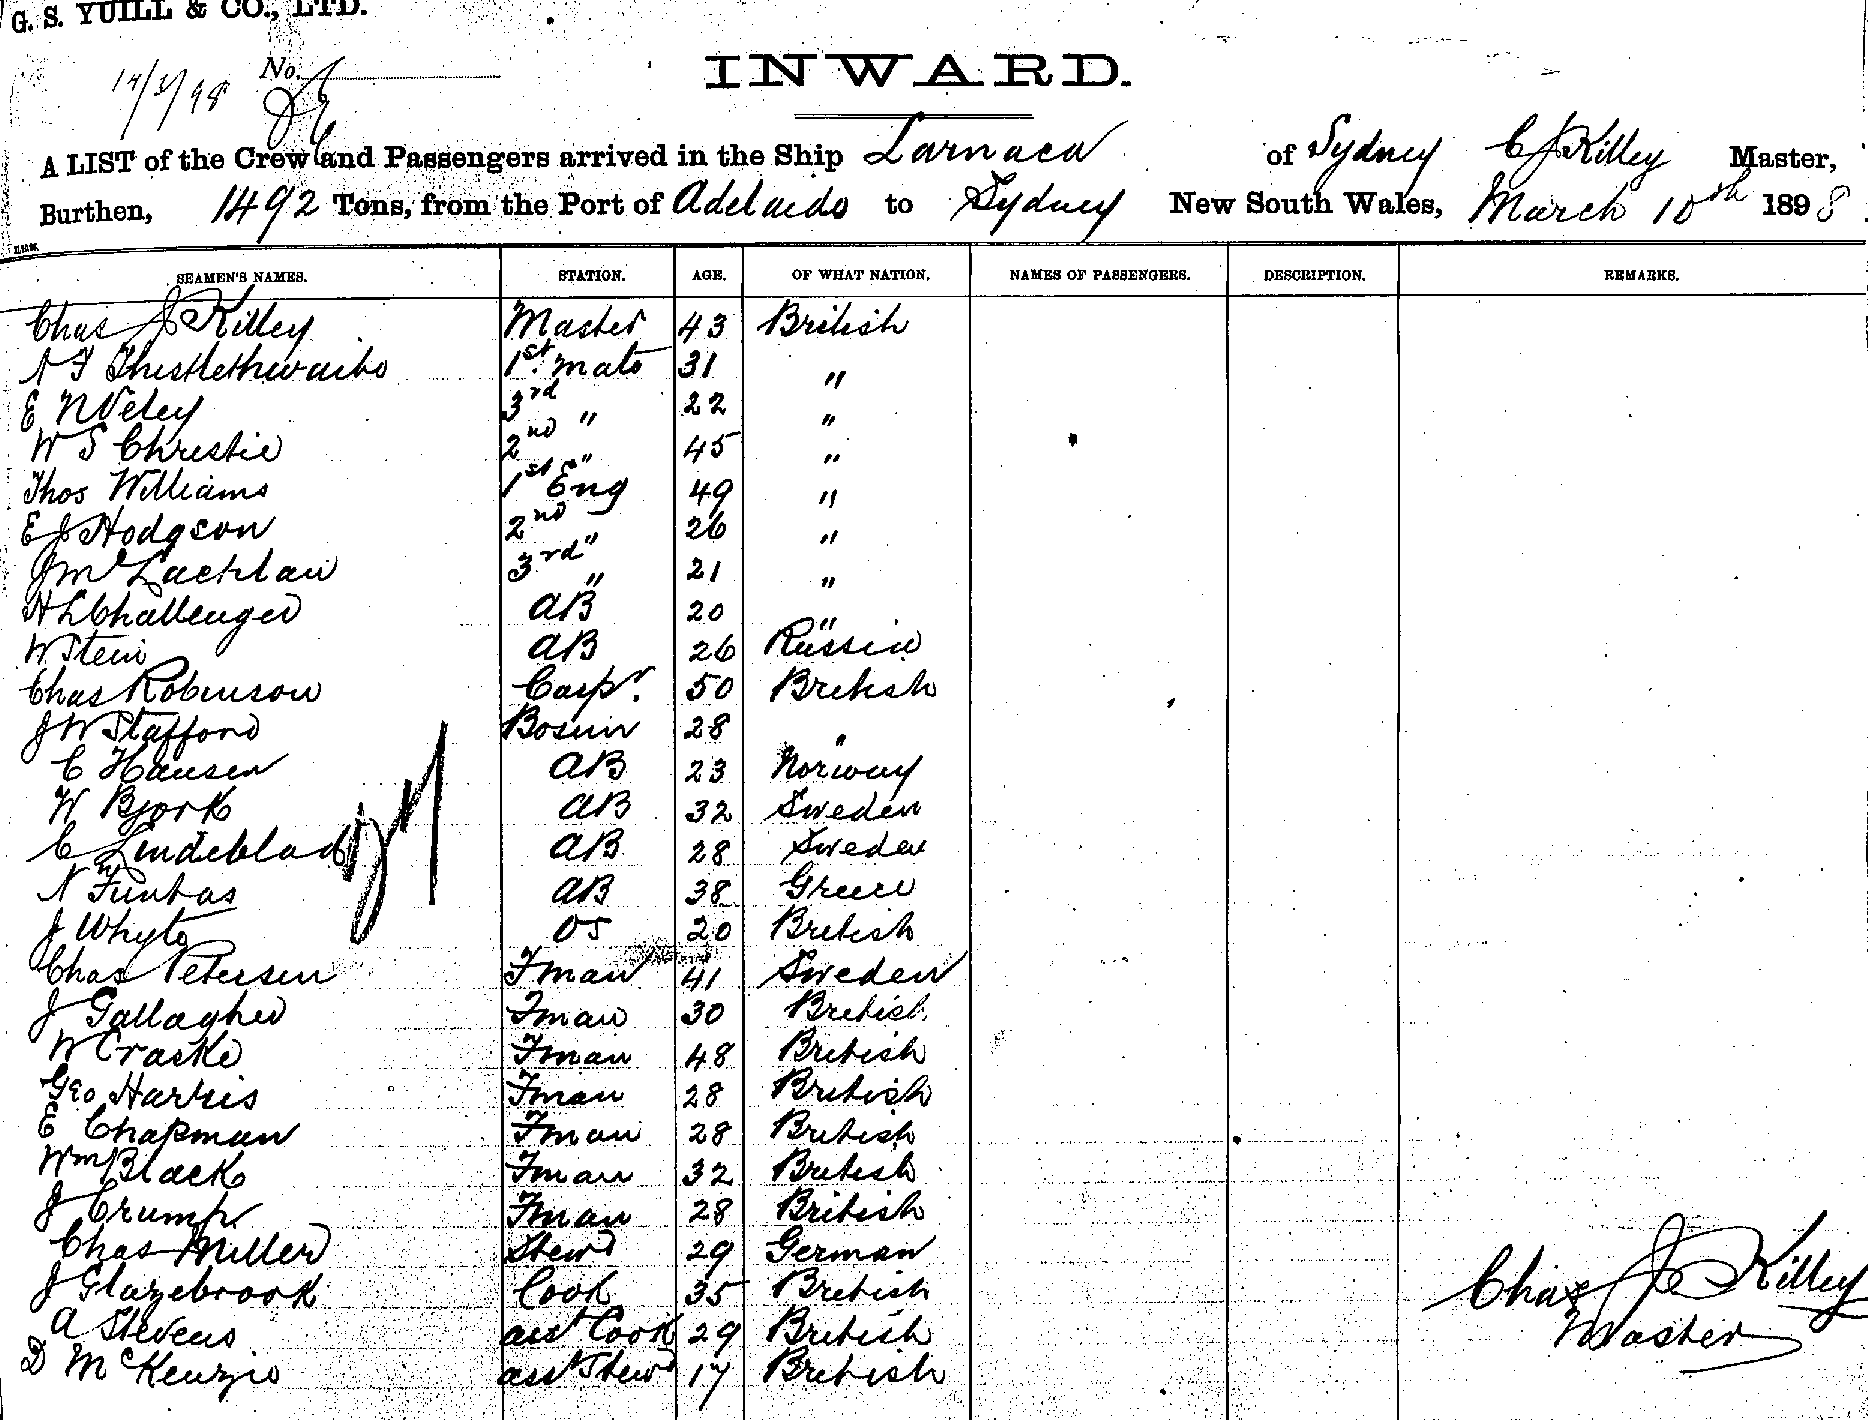 G. S. YUILL & CO., LTD.
14/3/98 No.
INWARD.
A LIST of the Crew and Passengers arrived in the Ship Larnaca of Sydney C J Killey Master,
Burthen, 1492 Tons, from the Port of Adelaide to Sydney New South Wales, March 10th 1898
SEAMEN'S NAMES. STATION. AGE. OF WHAT NATION. NAMES OF PASSENGERS. DESCRIPTION. REMARKS.
Chas J Killey Master 43 British
A F Thistlethwaite 1st. mate 31 "
E N Veley 3rd " 22 "
W S Christie 2nd " 45 "
Thos Williams 1st Eng 49 "
E J Hodgson 2nd " 26 "
J McLachlan 3rd " 21 "
H L Challenger AB 20 "
W Stein AB 26 Russia
Chas Robinson Carpr. 50 British
J W Stafford Bosun 28 "
C Hansen AB 23 Norway
W Bjork AB 32 Sweden
C Lindeblad AB 28 Sweden
N AB 38 Greece
J Whyte OS 20 British
Chas Petersen Fman 41 Sweden
J Gallagher Fman 30 British
W Craske Fman 48 British
Geo Harris Fman 28 British
E Chapman Fman 28 British
Wm Black Fman 32 British
J Crump Fman 28 British
Chas Miller Stewd 29 German
J Glazebrook Cook 35 British
A Stevens asst Cook 29 British
D McKenzie asst Stewd 17 British
Chas J Killey
Master